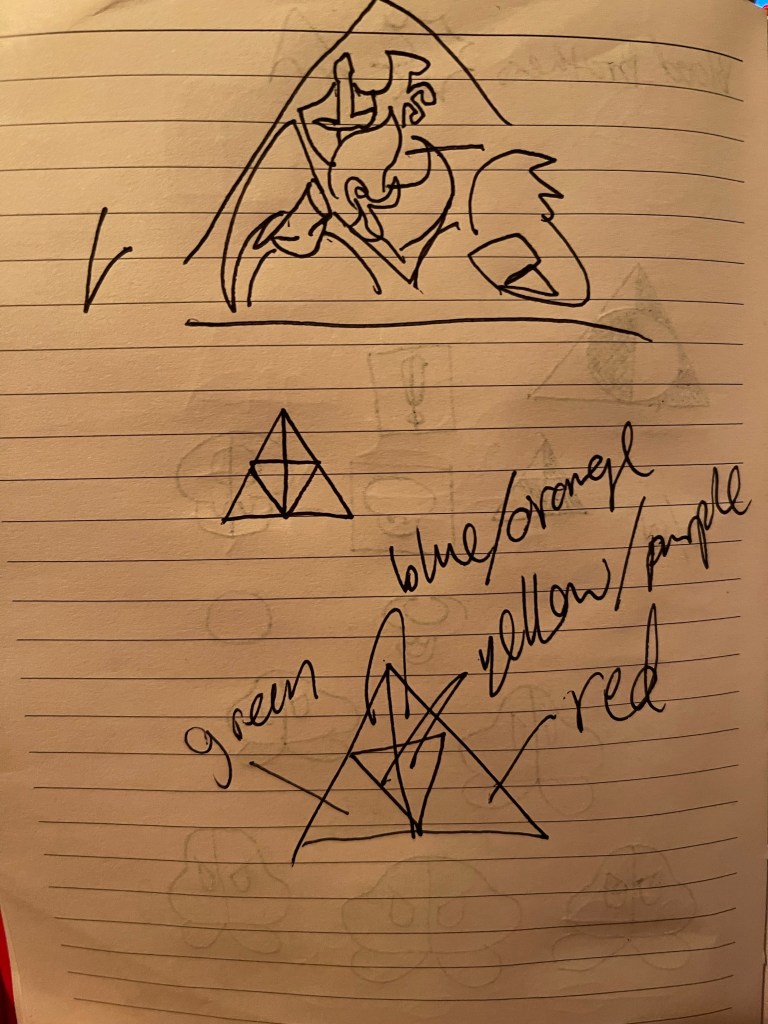 blue/orange
yellow/purple
green
red